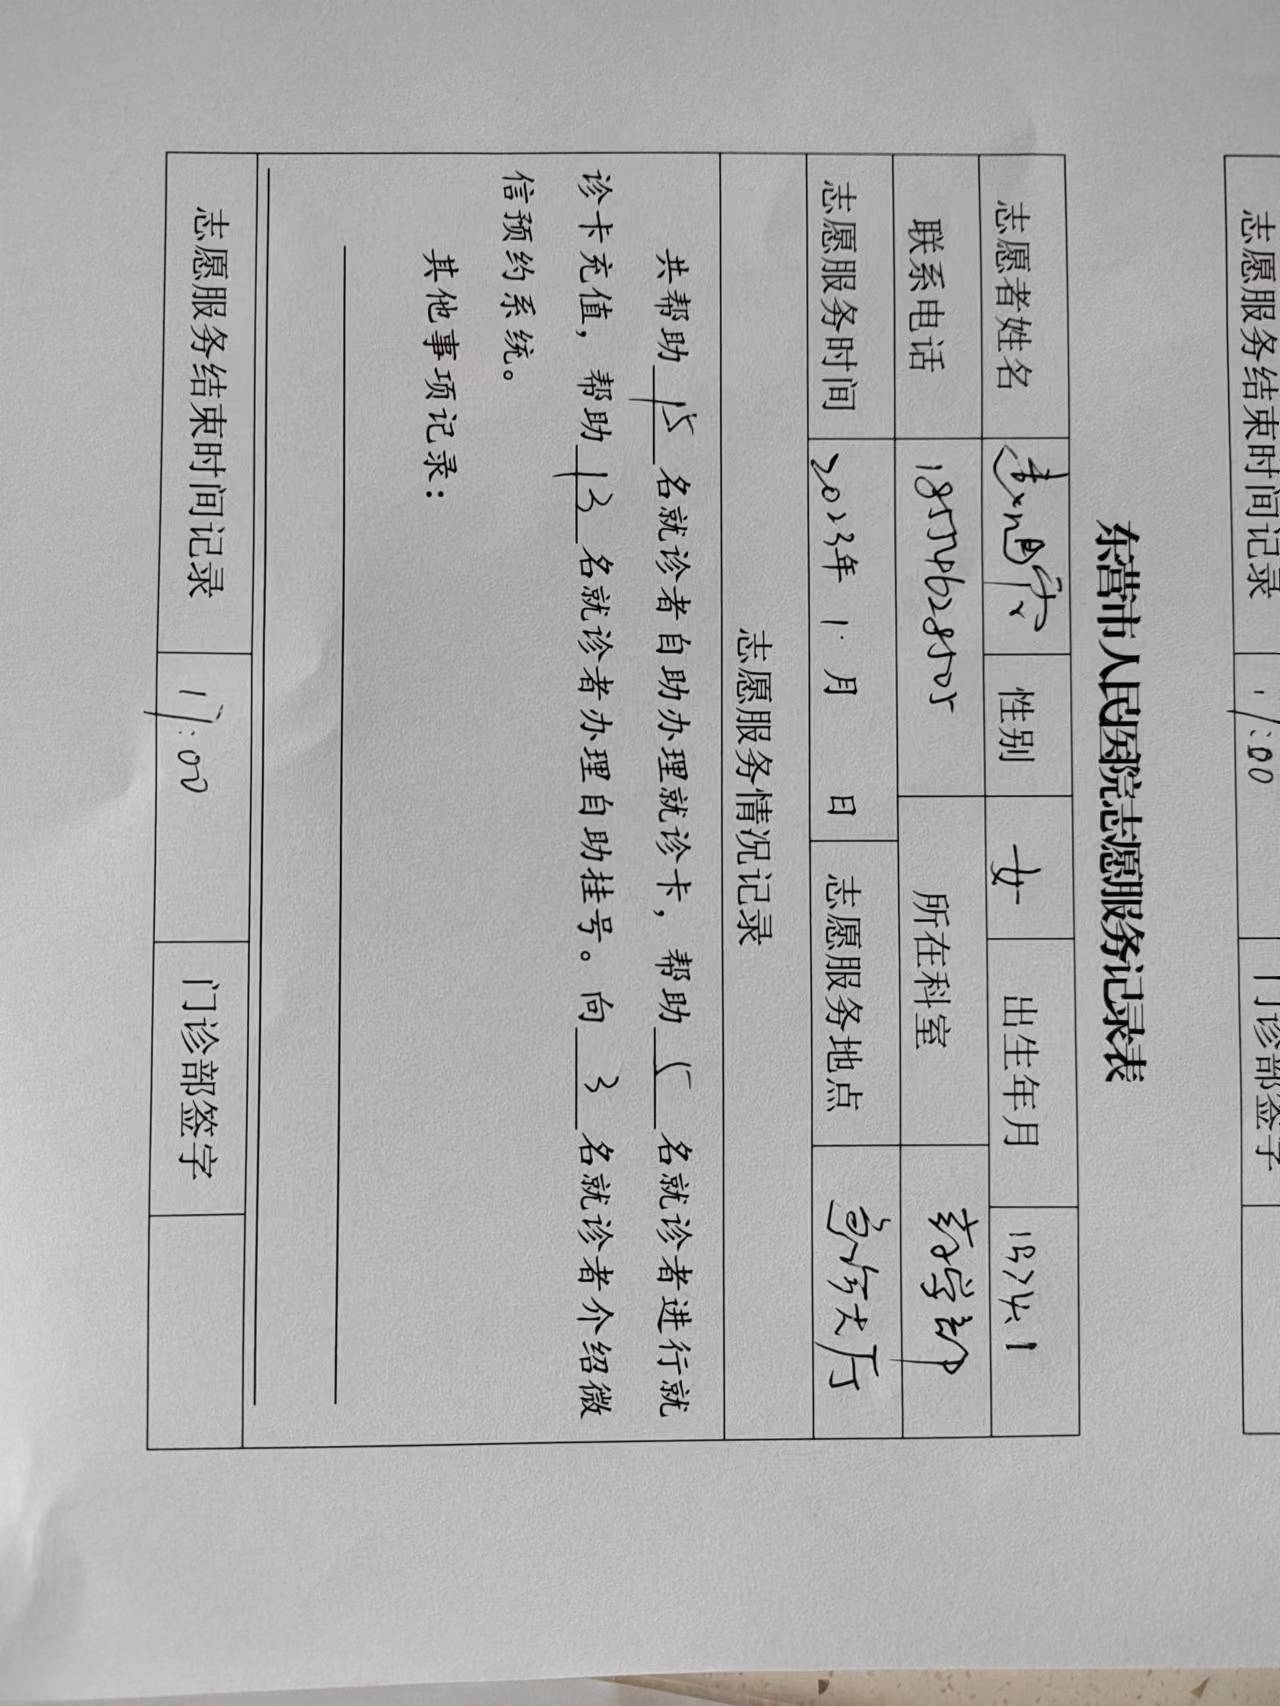 志愿服务结束时间记录 17:00 门诊部签字
东营市人民医院志愿服务记录表
志愿者姓名 性别 女 出生年月 1974.1
联系电话 18554628505 所在科室 药学部
志愿服务时间 2023年1月 日 志愿服务地点 大厅
志愿服务情况记录
共帮助15名就诊者自助办理就诊卡，帮助5名就诊者进行就
诊卡充值，帮助13名就诊者办理自助挂号。向3名就诊者介绍微
信预约系统。
其他事项记录：
志愿服务结束时间记录 17:00 门诊部签字